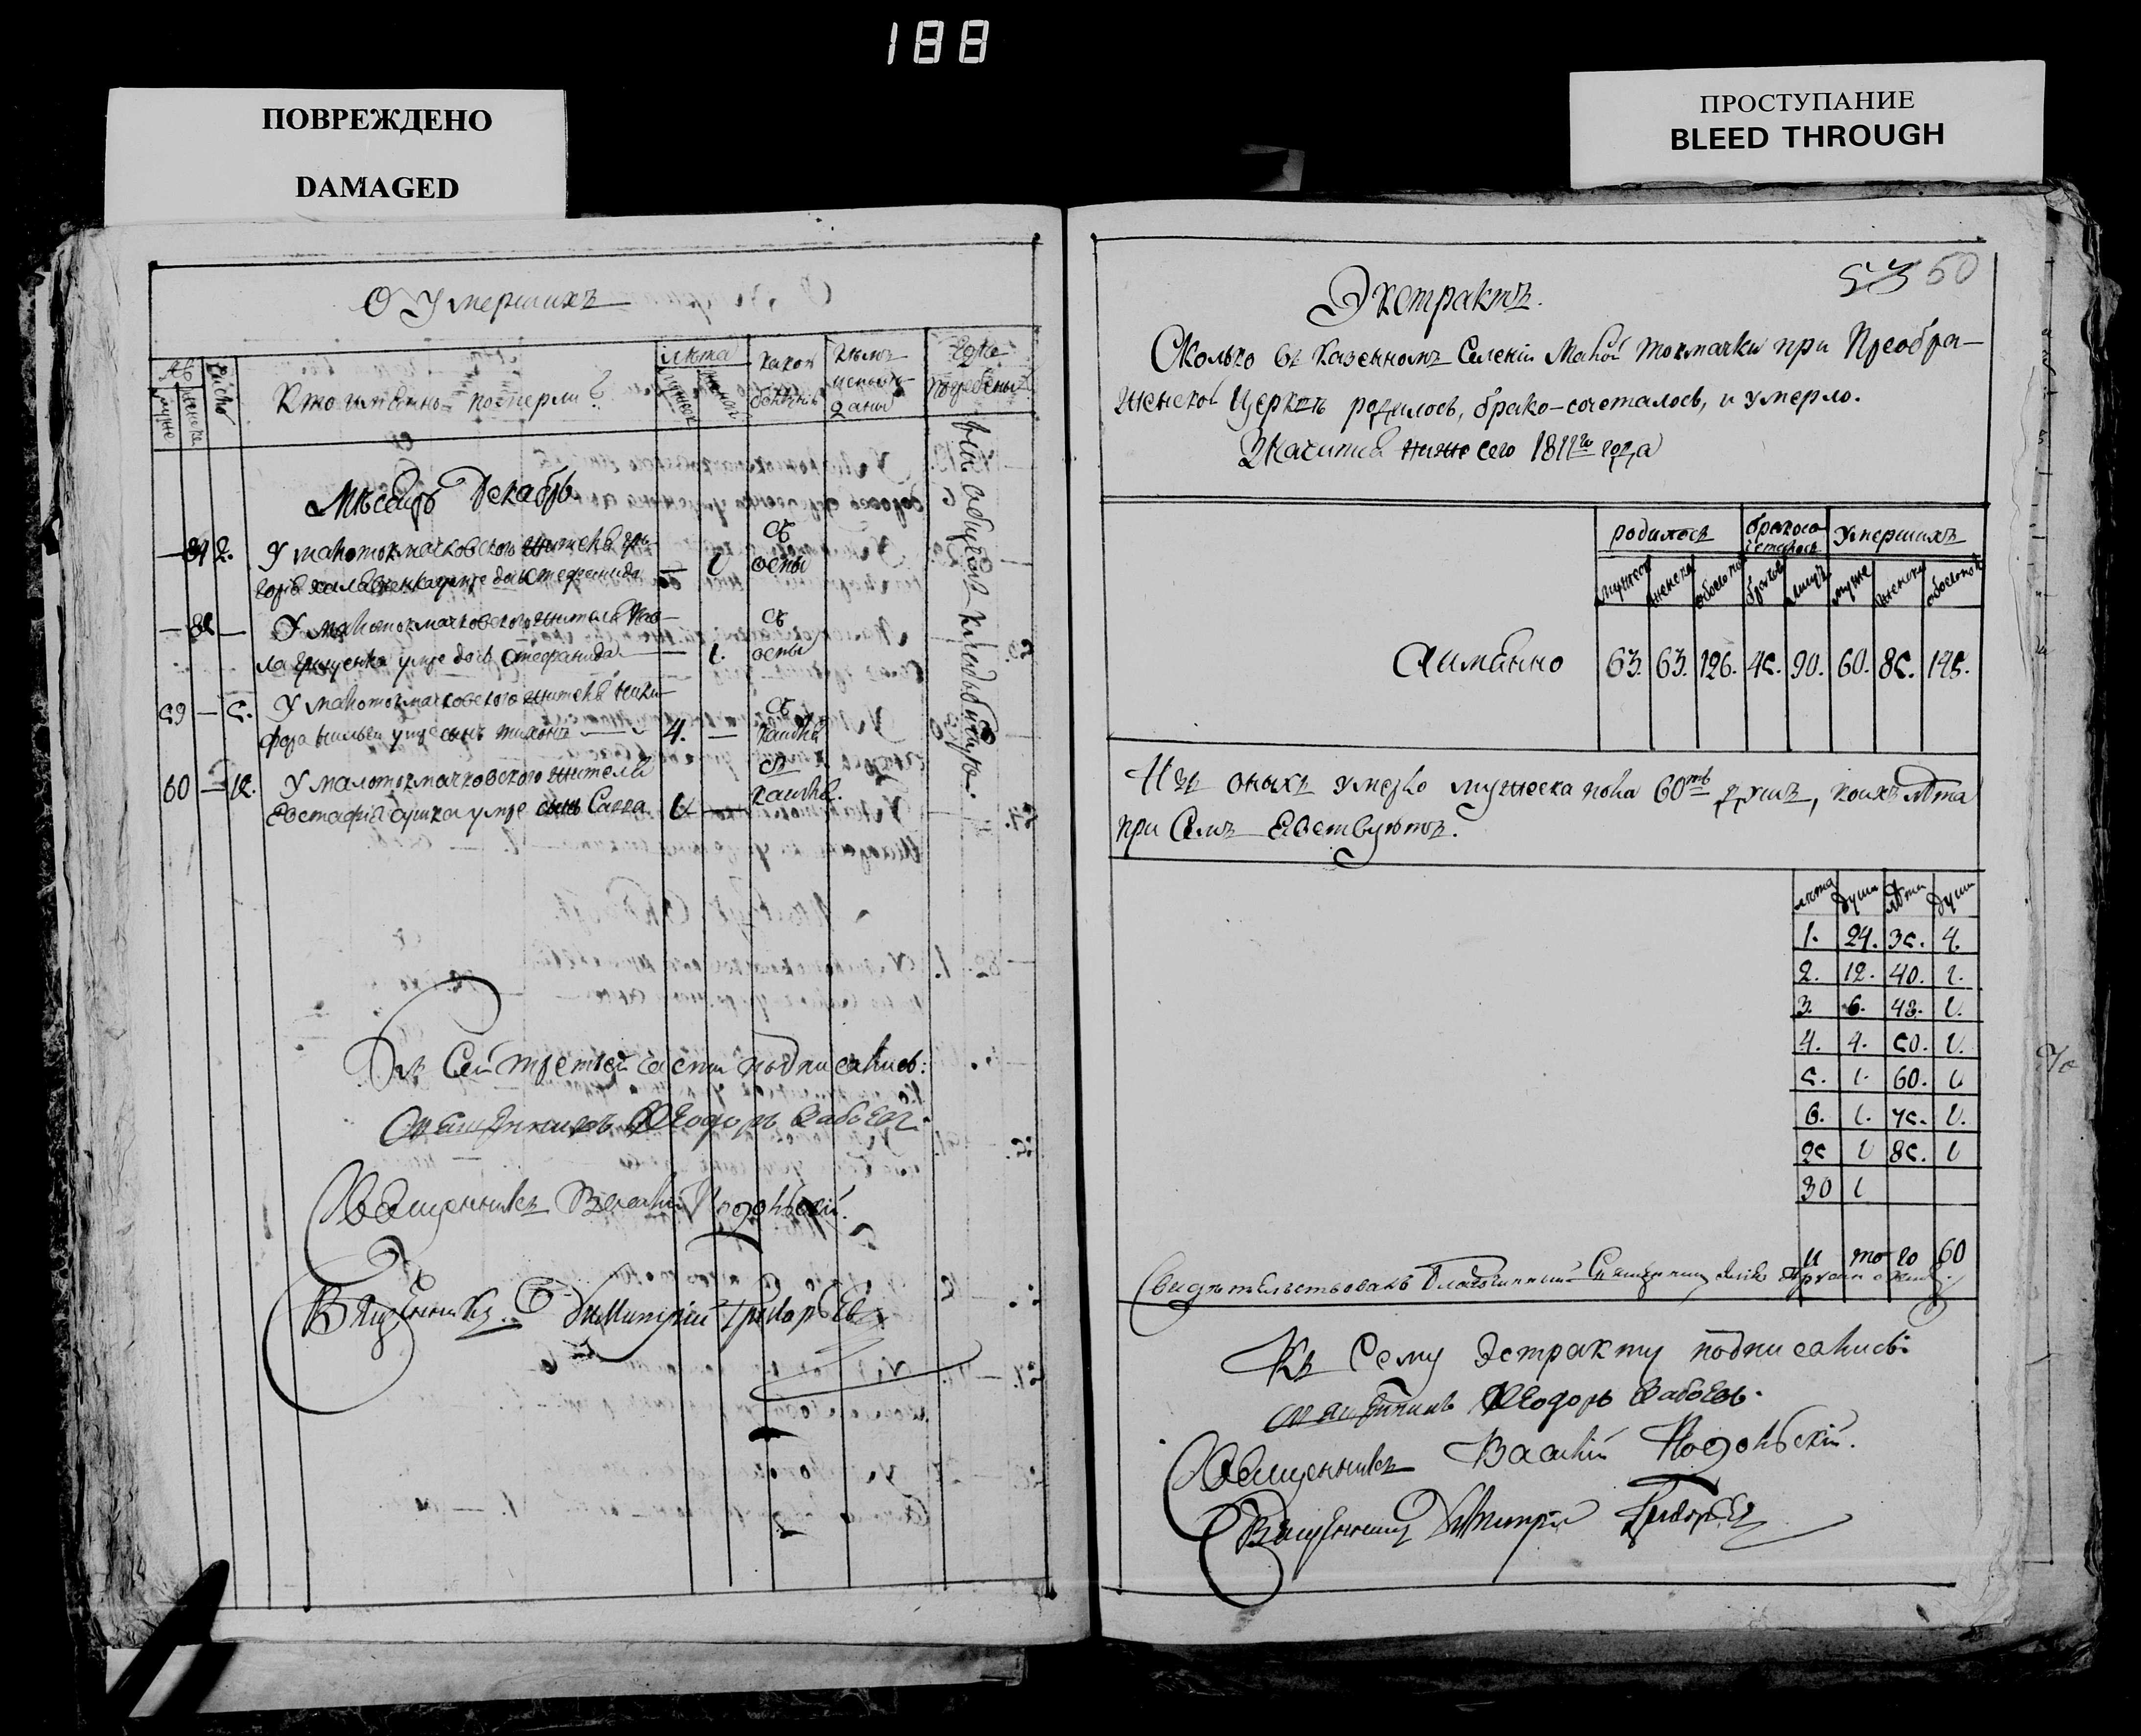 188
ПОВРЕЖДЕНО
DAMAGED
ПРОСТУПАНИЕ
BLEED THROUGH
О Умершихъ
Число
Кто имянно померли?
лѣта
какою болезнію
кѣмъ исповѣданы
Где погребены
Мѣсецъ Декабрь
84 2. У малотокмачковского жителя
умре дочь Стефанида — 1 съ оспы
— 85 — У малотокмачковского жителя Пав-
ла Грищенка умре дочь Стефанида — 1. съ оспы
59 — 5. У малотокмачковского жителя Ники-
фора умре сынъ Тихонъ 4. — съ кашля
60 — 15. У малотокмачковского жителя
Евстафія сушка умре сынъ Савва 1 — съ кашля.
на общемъ кладбищѣ.
Къ Сей третей части подписались:
Священникъ Ѳеодоръ
Священникъ Василій Подольскій.
Священникъ Димитрій Григорьевъ
53 50
Экстрактъ.
Сколько въ казенномъ Селеніи Малой токмачки при Преобра-
женской Церквѣ родилось, брако-сочеталось, и умерло.
Значится ниже сего 1811го года
родилось
бракосочеталось
Умершихъ
мужеска женска обоего браковъ лицъ муже женска обоего
А имянно 63. 63. 126. 45. 90. 60. 85. 145.
Изъ оныхъ умерло мужеска пола 60ть душъ, коихъ лѣта
при Семъ Явствуютъ.
лѣта души лѣта души
1. 24. 35. 4.
2. 12. 40. 1.
3. 6. 48. 1.
4. 4. 50. 1.
5. 1. 60. 1
6. 1. 75. 1.
25 1 85. 1
30 1
И то го 60
Свидѣтельствовалъ Благочинный Священникъ
Къ Сему Эстракту подписались:
Священникъ Ѳеодоръ
Священникъ Василій Подольскій.
Священникъ Димитрій Григорьевъ